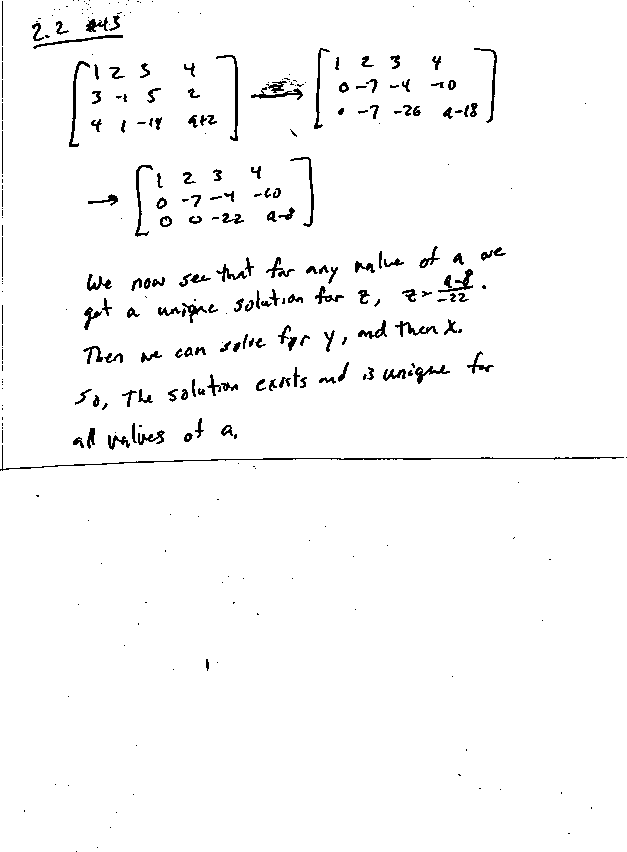 2.2 #43
[1 2 3 4
3 -1 5 2
4 1 -14 a+2] → [1 2 3 4
0 -7 -4 -10
0 -7 -26 a-18]
→ [1 2 3 4
0 -7 -4 -10
0 0 -22 a-8]
We now see that for any value of a we
get a unique solution for z, z = a-8/-22.
Then we can solve for y, and then x.
So, The solution exists and is unique for
all values of a.